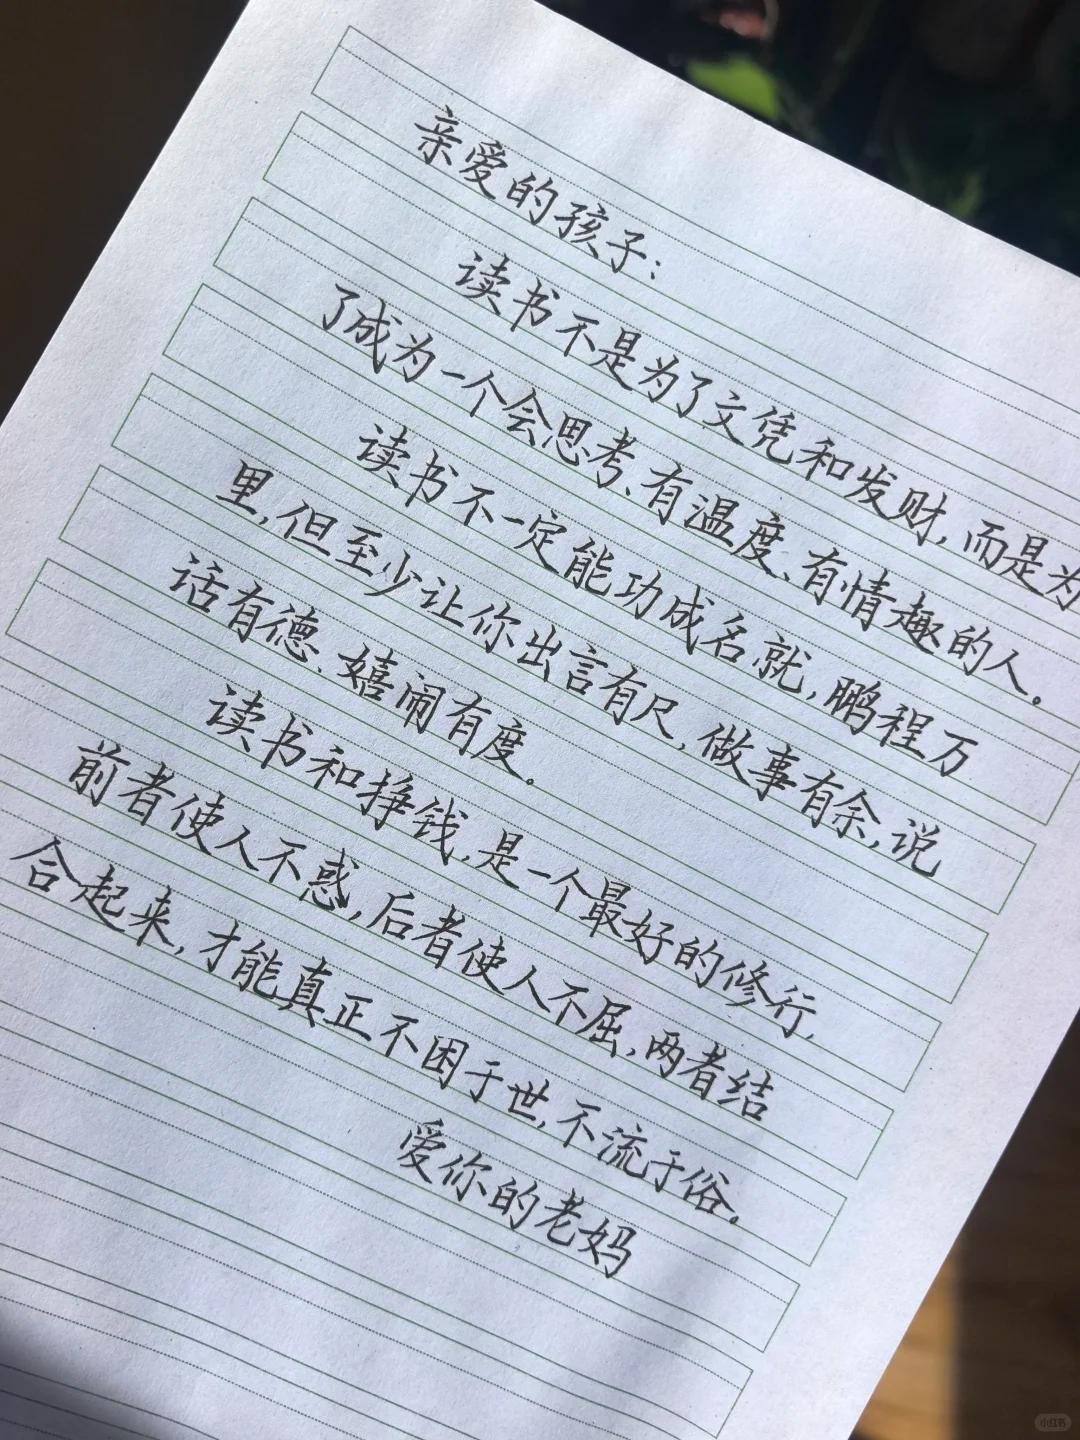 亲爱的孩子：
读书不是为了文凭和发财，而是为
了成为一个会思考、有温度、有情趣的人。
读书不一定能功成名就，鹏程万
里，但至少让你出言有尺，做事有余，说
话有德、嬉闹有度。
读书和挣钱，是一个最好的修行，
前者使人不惑，后者使人不屈，两者结
合起来，才能真正不困于世，不流于俗。
爱你的老妈
小红书